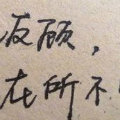 反顾，
在所不